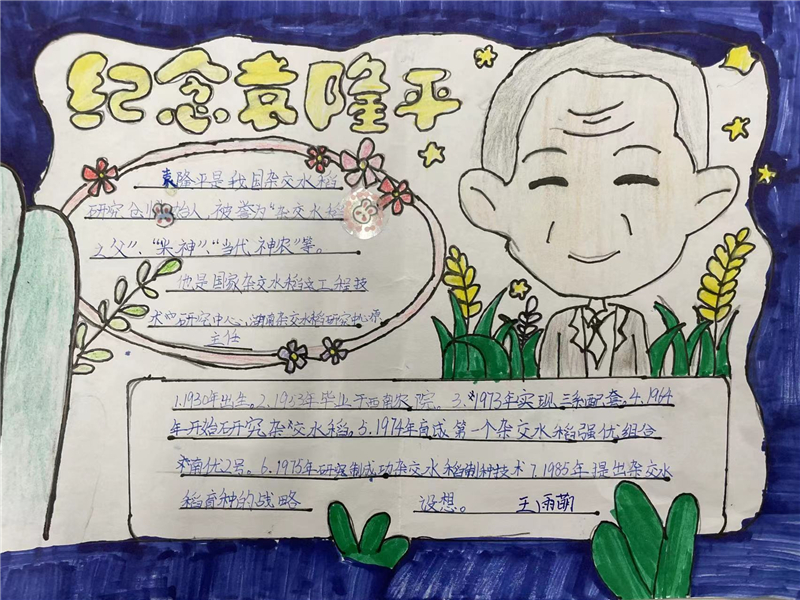 纪念袁隆平
袁隆平是我国杂交水稻
研究创始人，被誉为“杂交水稻
之父”、“米神”、“当代神农”等。
他是国家杂交水稻工程技
术研究中心、湖南杂交水稻研究中心原
主任
1.1930年出生。2.1953年毕业于西南农院。3.1973年实现三系配套。4.1964
年开始研究杂交水稻。5.1974年育成第一个杂交水稻强优组合
南优2号。6.1975年研究制成功杂交水稻制种技术7.1985年提出杂交水
稻育种的战略 设想。 王雨萌